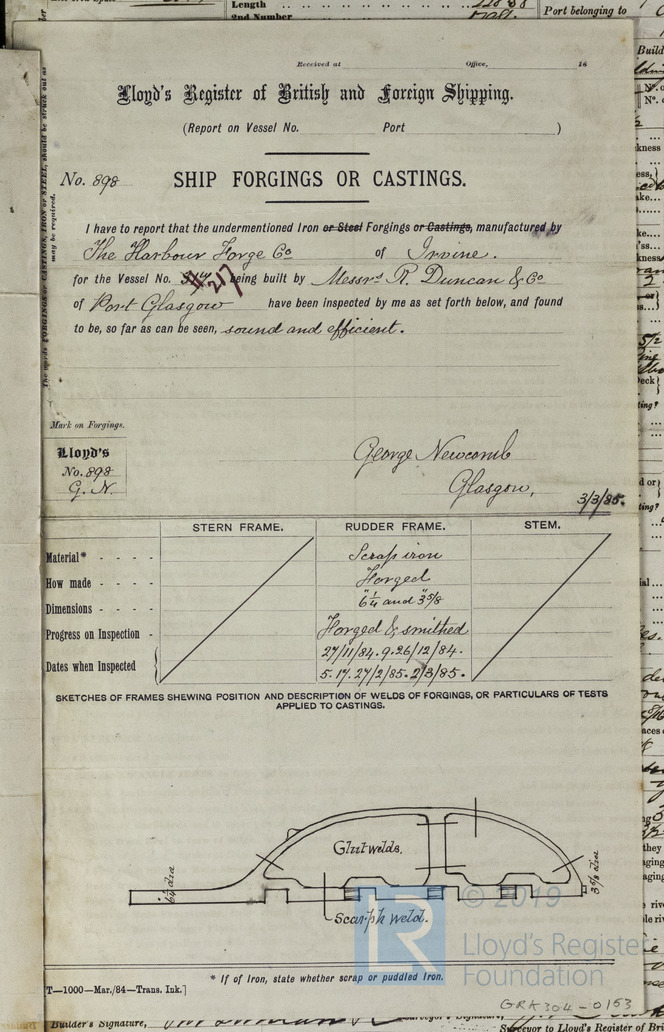 Length
2nd Number
Port belonging to
Received at Office, 18
Lloyd's Register of British and Foreign Shipping.
(Report on Vessel No. Port )
No. 898
SHIP FORGINGS OR CASTINGS.
I have to report that the undermentioned Iron or Steel Forgings or Castings, manufactured by
The Harbour Forge Co of Irvine.
for the Vessel No. 217 being built by Messrs R. Duncan & Co
of Port Glasgow have been inspected by me as set forth below, and found
to be, so far as can be seen, sound and efficient.
The words FORGINGS or CASTINGS, IRON or STEEL, should be struck out as
may be required.
Mark on Forgings.
Lloyd's
No. 898
G. N.
George Newcomb
Glasgow,
3/3/85.
STERN FRAME. RUDDER FRAME. STEM.
Material* - - - - Scrap iron
How made - - - - Forged
Dimensions - - - - 6¼" and 3⅝"
Progress on Inspection - Forged & smithed
Dates when Inspected 27/11/84. 9. 26/12/84.
5. 17. 27/2/85. 2/3/85.
SKETCHES OF FRAMES SHEWING POSITION AND DESCRIPTION OF WELDS OF FORGINGS, OR PARTICULARS OF TESTS
APPLIED TO CASTINGS.
Glut welds.
6¼ dia
3⅝ dia
Scarph weld.
© 2019
LR
Lloyd's Register
Foundation
* If of Iron, state whether scrap or puddled Iron.
T—1000—Mar./84—Trans. Ink.]
GRK304-0153
Builder's Signature,
Surveyor's Signature,
Surveyor to Lloyd's Register of Bri